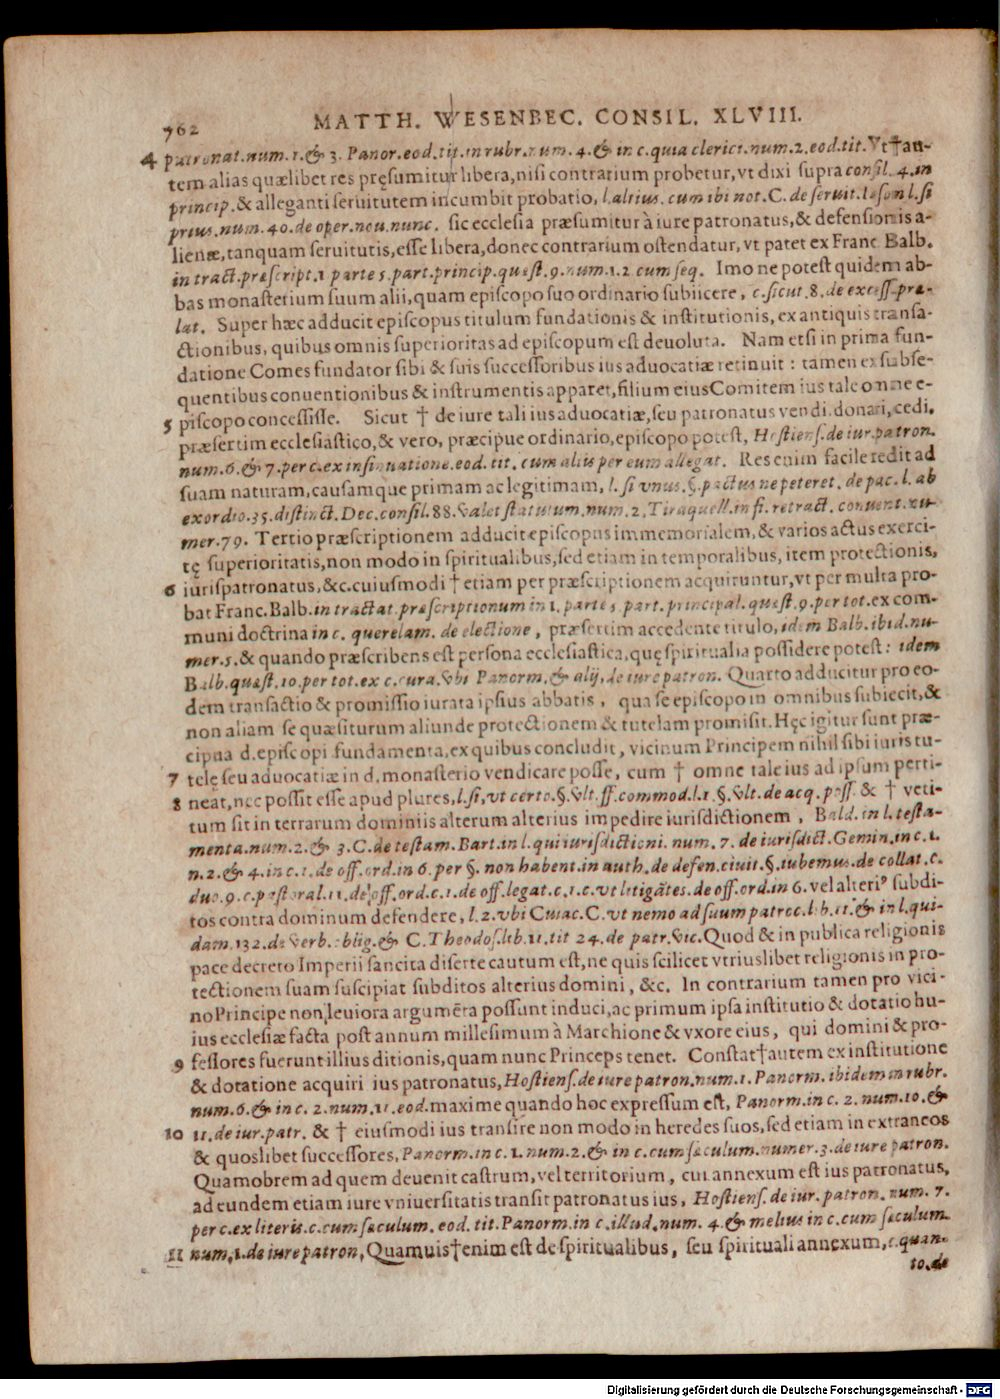 762
MATTH. WESENBEC. CONSIL. XLVIII.
4 patronat.num.1.& 3. Panor.eod.tit.in rubr.num.4.& in c.quia clerici.num.2.eod.tit.Vt†au-
tem alias quælibet res pręsumitur libera,nisi contrarium probetur,vt dixi supra consil.4.in
princip.& alleganti seruitutem incumbit probatio, l.altius.cum ibi not.C.de seruit. l.si
prius.num.40.de oper.nou.nunc. sic ecclesia præsumitur à iure patronatus,& defensionis a-
lienæ,tanquam seruitutis,esse libera,donec contrarium ostendatur, vt patet ex Franc. Balb.
in tract.præscript.1 parte 5.part.princip.quæst.9.num.1.2 cum seq. Imo ne potest quidem ab-
bas monasterium suum alii,quam episcopo suo ordinario subiicere, c.sicut.8.de excess.præ-
lat. Super hæc adducit episcopus titulum fundationis & institutionis, ex antiquis transa-
ctionibus, quibus omnis superioritas ad episcopum est deuoluta. Nam etsi in prima fun-
datione Comes fundator sibi & suis successoribus ius aduocatiæ retinuit : tamen ex subse-
quentibus conuentionibus & instrumentis apparet,filium eius Comitem ius tale omne e-
5 piscopo concessisse. Sicut † de iure tali ius aduocatiæ,seu patronatus vendi.donari,cedi.
præsertim ecclesiastico,& vero, præcipue ordinario,episcopo potest, Hostiens.de iur.patron.
num.6.& 7.per c.ex insinuatione.eod.tit. cum aliis per eum allegat. Res enim facile redit ad
suam naturam,causamque primam ac legitimam, l.si vnus.§.pactus ne peteret.de pac.l.ab
exordio.35.distinct.Dec.consil.88.Valet statutum.num.2.Tiraquell.in fi.retract.conuent.nu-
mer.79. Tertio præscriptionem adducit episcopus immemorialem,& varios actus exerci-
tę superioritatis,non modo in spiritualibus,sed etiam in temporalibus, item protectionis,
6 iurispatronatus,&c.cuiusmodi † etiam per præscriptionem acquiruntur,vt per multa pro-
bat Franc.Balb.in tractat.præscriptionum in 1.parte 5.part.principal.quæst.9.per tot.ex com-
muni doctrina in c. querelam. de electione, præsertim accedente titulo,idem Balb.ibid.nu-
mer.5.& quando præscribens est persona ecclesiastica,quę spiritualia possidere potest: idem
Balb.quæst.10.per tot.ex c.cura.vbi Panorm.& alij,de iure patron. Quarto adducitur pro eo-
dem transactio & promissio iurata ipsius abbatis, qua se episcopo in omnibus subiecit,&
non aliam se quæsiturum aliunde protectionem & tutelam promisit. Hęc igitur sunt præ-
cipua d.episcopi fundamenta,ex quibus concludit, vicinum Principem nihil sibi iuris tu-
7 telę seu aduocatiæ in d.monasterio vendicare posse, cum † omne tale ius ad ipsum perti-
8 neat,nec possit esse apud plures,l.si,vt certo.§.vlt.ff.commod.l.1.§.vlt.de acq.poss. & † veti-
tum sit in terrarum dominiis alterum alterius impedire iurisdictionem, Bald.in l.testa-
menta.num.2.& 3.C.de testam.Bart.in l.qui iurisdictioni. num. 7. de iurisdict.Gemin.in c.1.
n.2.& 4.in c.1.de off.ord.in 6.per §. non habent.in auth.de defen.ciuit.§.iubemus.de collat.c.
duo.9.c.pastoral.11.de off.ord.c.1.de off.legat.c.1.c.vt litigātes.de off.ord.in 6.vel alteriꝰ subdi-
tos contra dominum defendere, l.2.vbi Cuiac.C.vt nemo ad suum patroc.lib.11.& in l.qui-
dam.132.de verb.oblig.& C.Theodos.lib.11.tit 24.de patr.vic.Quod & in publica religionis
pace decreto Imperii sancita diserte cautum est,ne quis scilicet vtriuslibet religionis in pro-
tectionem suam suscipiat subditos alterius domini, &c. In contrarium tamen pro vici-
no Principe non leuiora argumēta possunt induci,ac primum ipsa institutio & dotatio hu-
ius ecclesiæ facta post annum millesimum à Marchione & vxore eius, qui domini & pro-
9 fessores fuerunt illius ditionis,quam nunc Princeps tenet. Constat†autem ex institutione
& dotatione acquiri ius patronatus,Hostiens.de iure patron.num.1.Panorm.ibidem in rubr.
num.6.& in c. 2.num.11.eod.maxime quando hoc expressum est, Panorm.in c. 2. num.10.&
10 11.de iur.patr. & † eiusmodi ius transire non modo in heredes suos,sed etiam in extraneos
& quoslibet successores, Panorm.in c.1.num.2.& in c.cum sæculum.numer.3.de iure patron.
Quamobrem ad quem deuenit castrum,vel territorium, cui annexum est ius patronatus,
ad eundem etiam iure vniuersitatis transit patronatus ius, Hostiens.de iur.patron.num. 7.
per c.ex literis.c.cum sæculum. eod.tit.Panorm.in c.illud.num. 4.& melius in c.cum sæculum.
11 num.1.de iure patron, Quamuis†enim est de spiritualibus, seu spirituali annexum,c.quan-
to.de
Digitalisierung gefördert durch die Deutsche Forschungsgemeinschaft - DFG